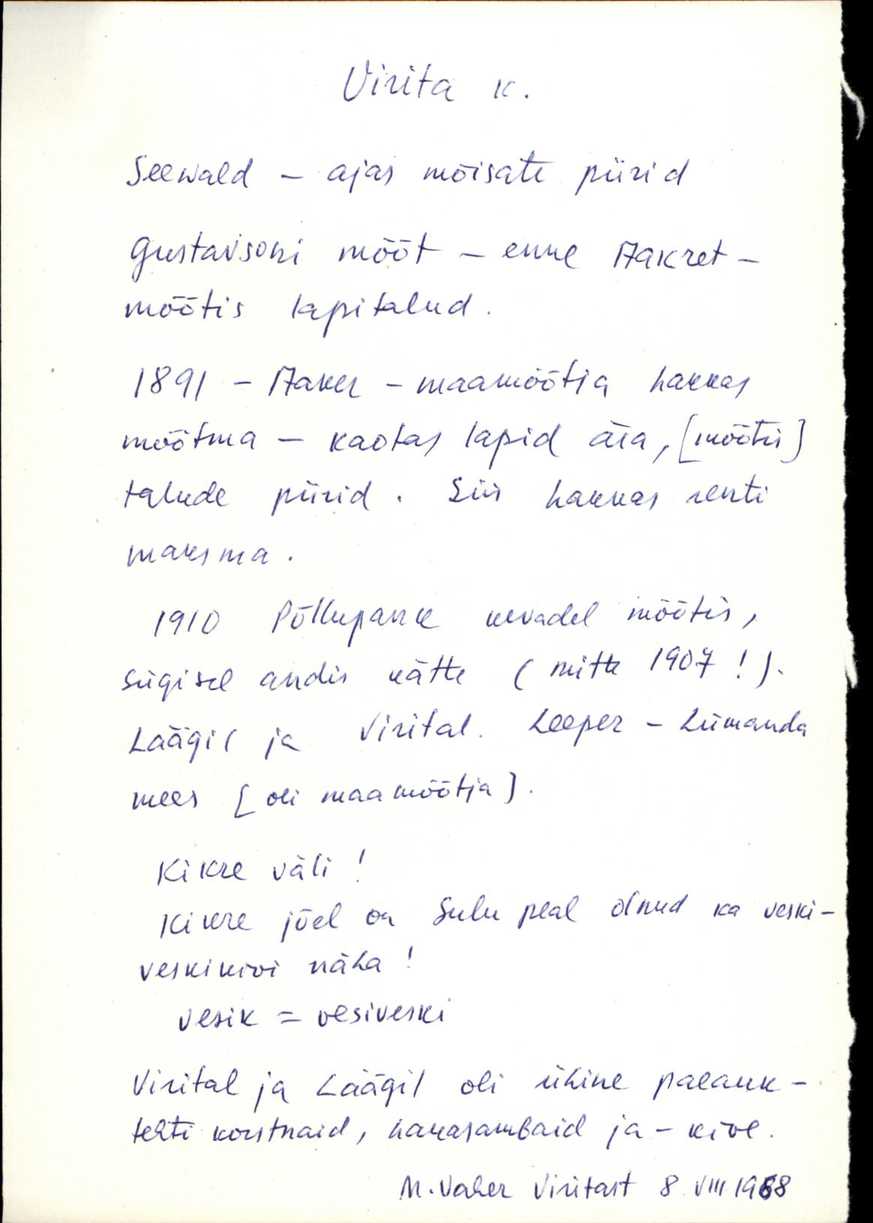 Virita k.
Seewald – ajas mõisate piirid
Gustavsoni mõõt – enne Aakret –
mõõtis lapitalud.
1891 – Aaker – maamõõtja hakkas
mõõtma – kaotas lapid ära, [mõõtis]
talude piirid. Siis hakkas renti
maksma.
1910 Põllupank kevadel mõõtis,
sügisel andis kätte (mitte 1907!).
Läägil ja Virital. Leeper – Liimanda
mees [oli maamõõtja].
Kikre väli!
Kikre jõel on Sulu peal olnud ka veski –
veskikivi näha!
vesik = vesiveski
Virital ja Läägil oli ühine paeauk –
tehti korstnaid, hauasambaid ja – kive.
M. Vaher Viritast 8 VIII 1968